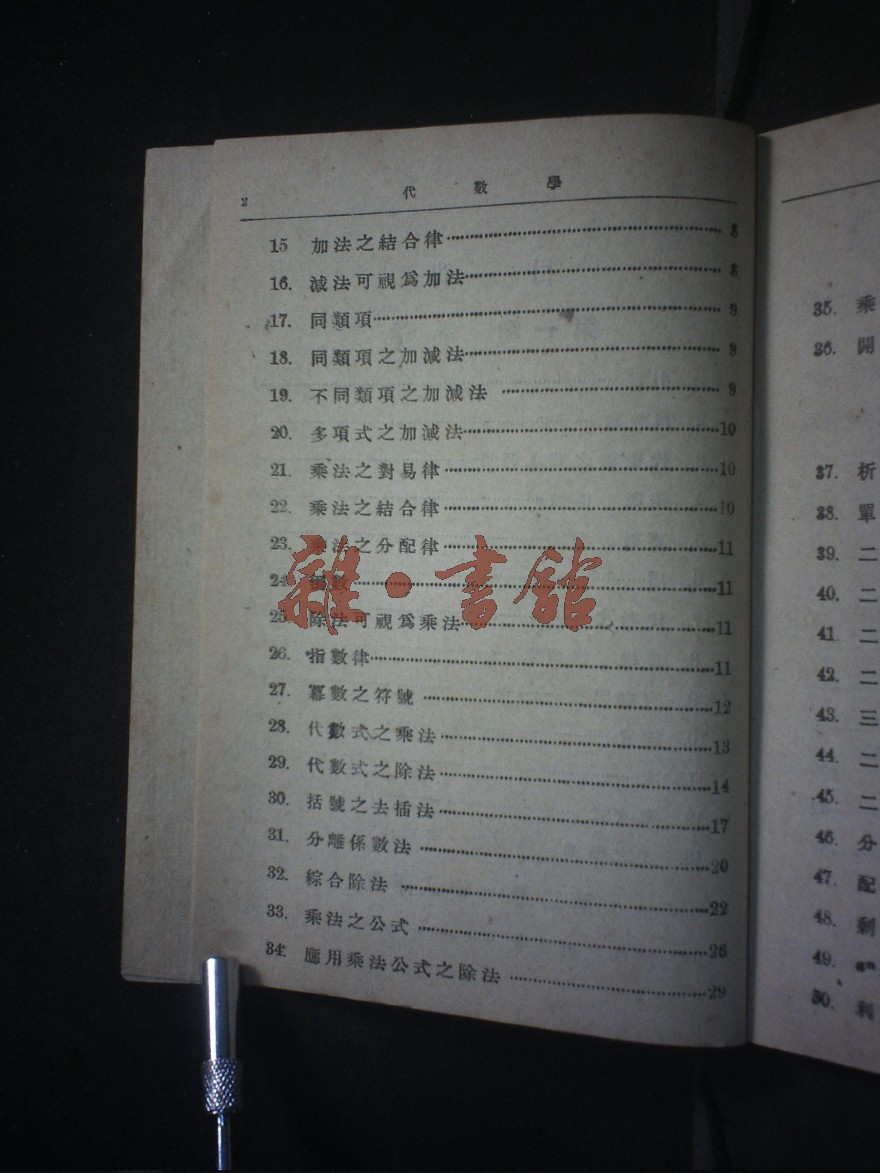 2 代數學
15 加法之結合律 8
16. 減法可視爲加法 8
17. 同類項 9
18. 同類項之加減法 9
19. 不同類項之加減法 9
20. 多項式之加減法 10
21. 乘法之對易律 10
22. 乘法之結合律 10
23. 乘法之分配律 11
24. 數 11
25. 除法可視爲乘法 11
26. 指數律 11
27. 冪數之符號 12
28. 代數式之乘法 13
29. 代數式之除法 14
30. 括號之去插法 17
31. 分離係數法 20
32. 綜合除法 22
33. 乘法之公式 26
34. 應用乘法公式之除法 29
雜·書館
35. 乘
36. 開
37. 析
38. 單
39. 二
40. 二
41. 二
42. 二
43. 三
44. 二
45. 二
46. 分
47. 配
48. 剩
49.
50. 利